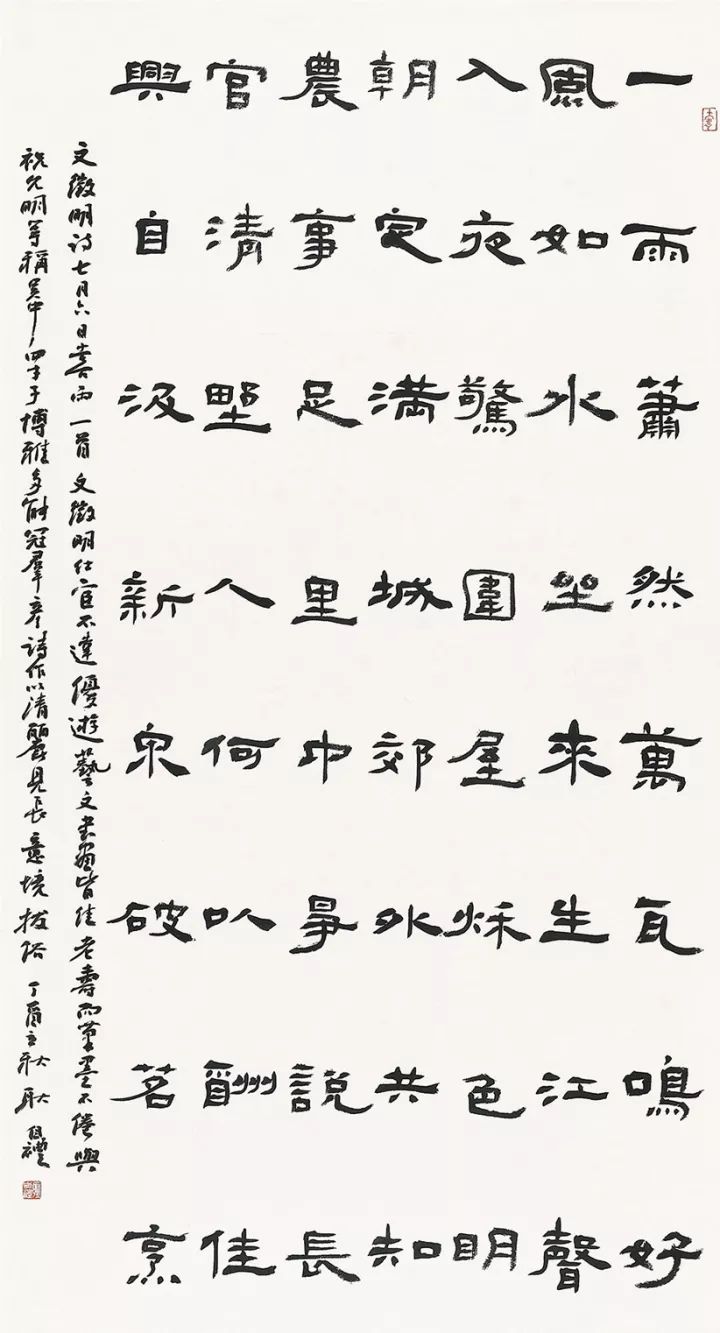 一雨蕭然萬瓦鳴好
風如水坐來生江聲
入夜驚圍屋秌色明
朝定滿城郊外共知
農事足里中爭說長
官清野人何以酬佳
興自汲新泉破茗烹
文徵明詩七月六日喜雨一首 文徵明仕宦不達優遊藝文書畫皆佳老壽而筆墨不倦與
祝允明等稱吳中四才子博雅多能冠羣彥詩作以清麗見長意境拔俗 丁酉立秋 耿自禮